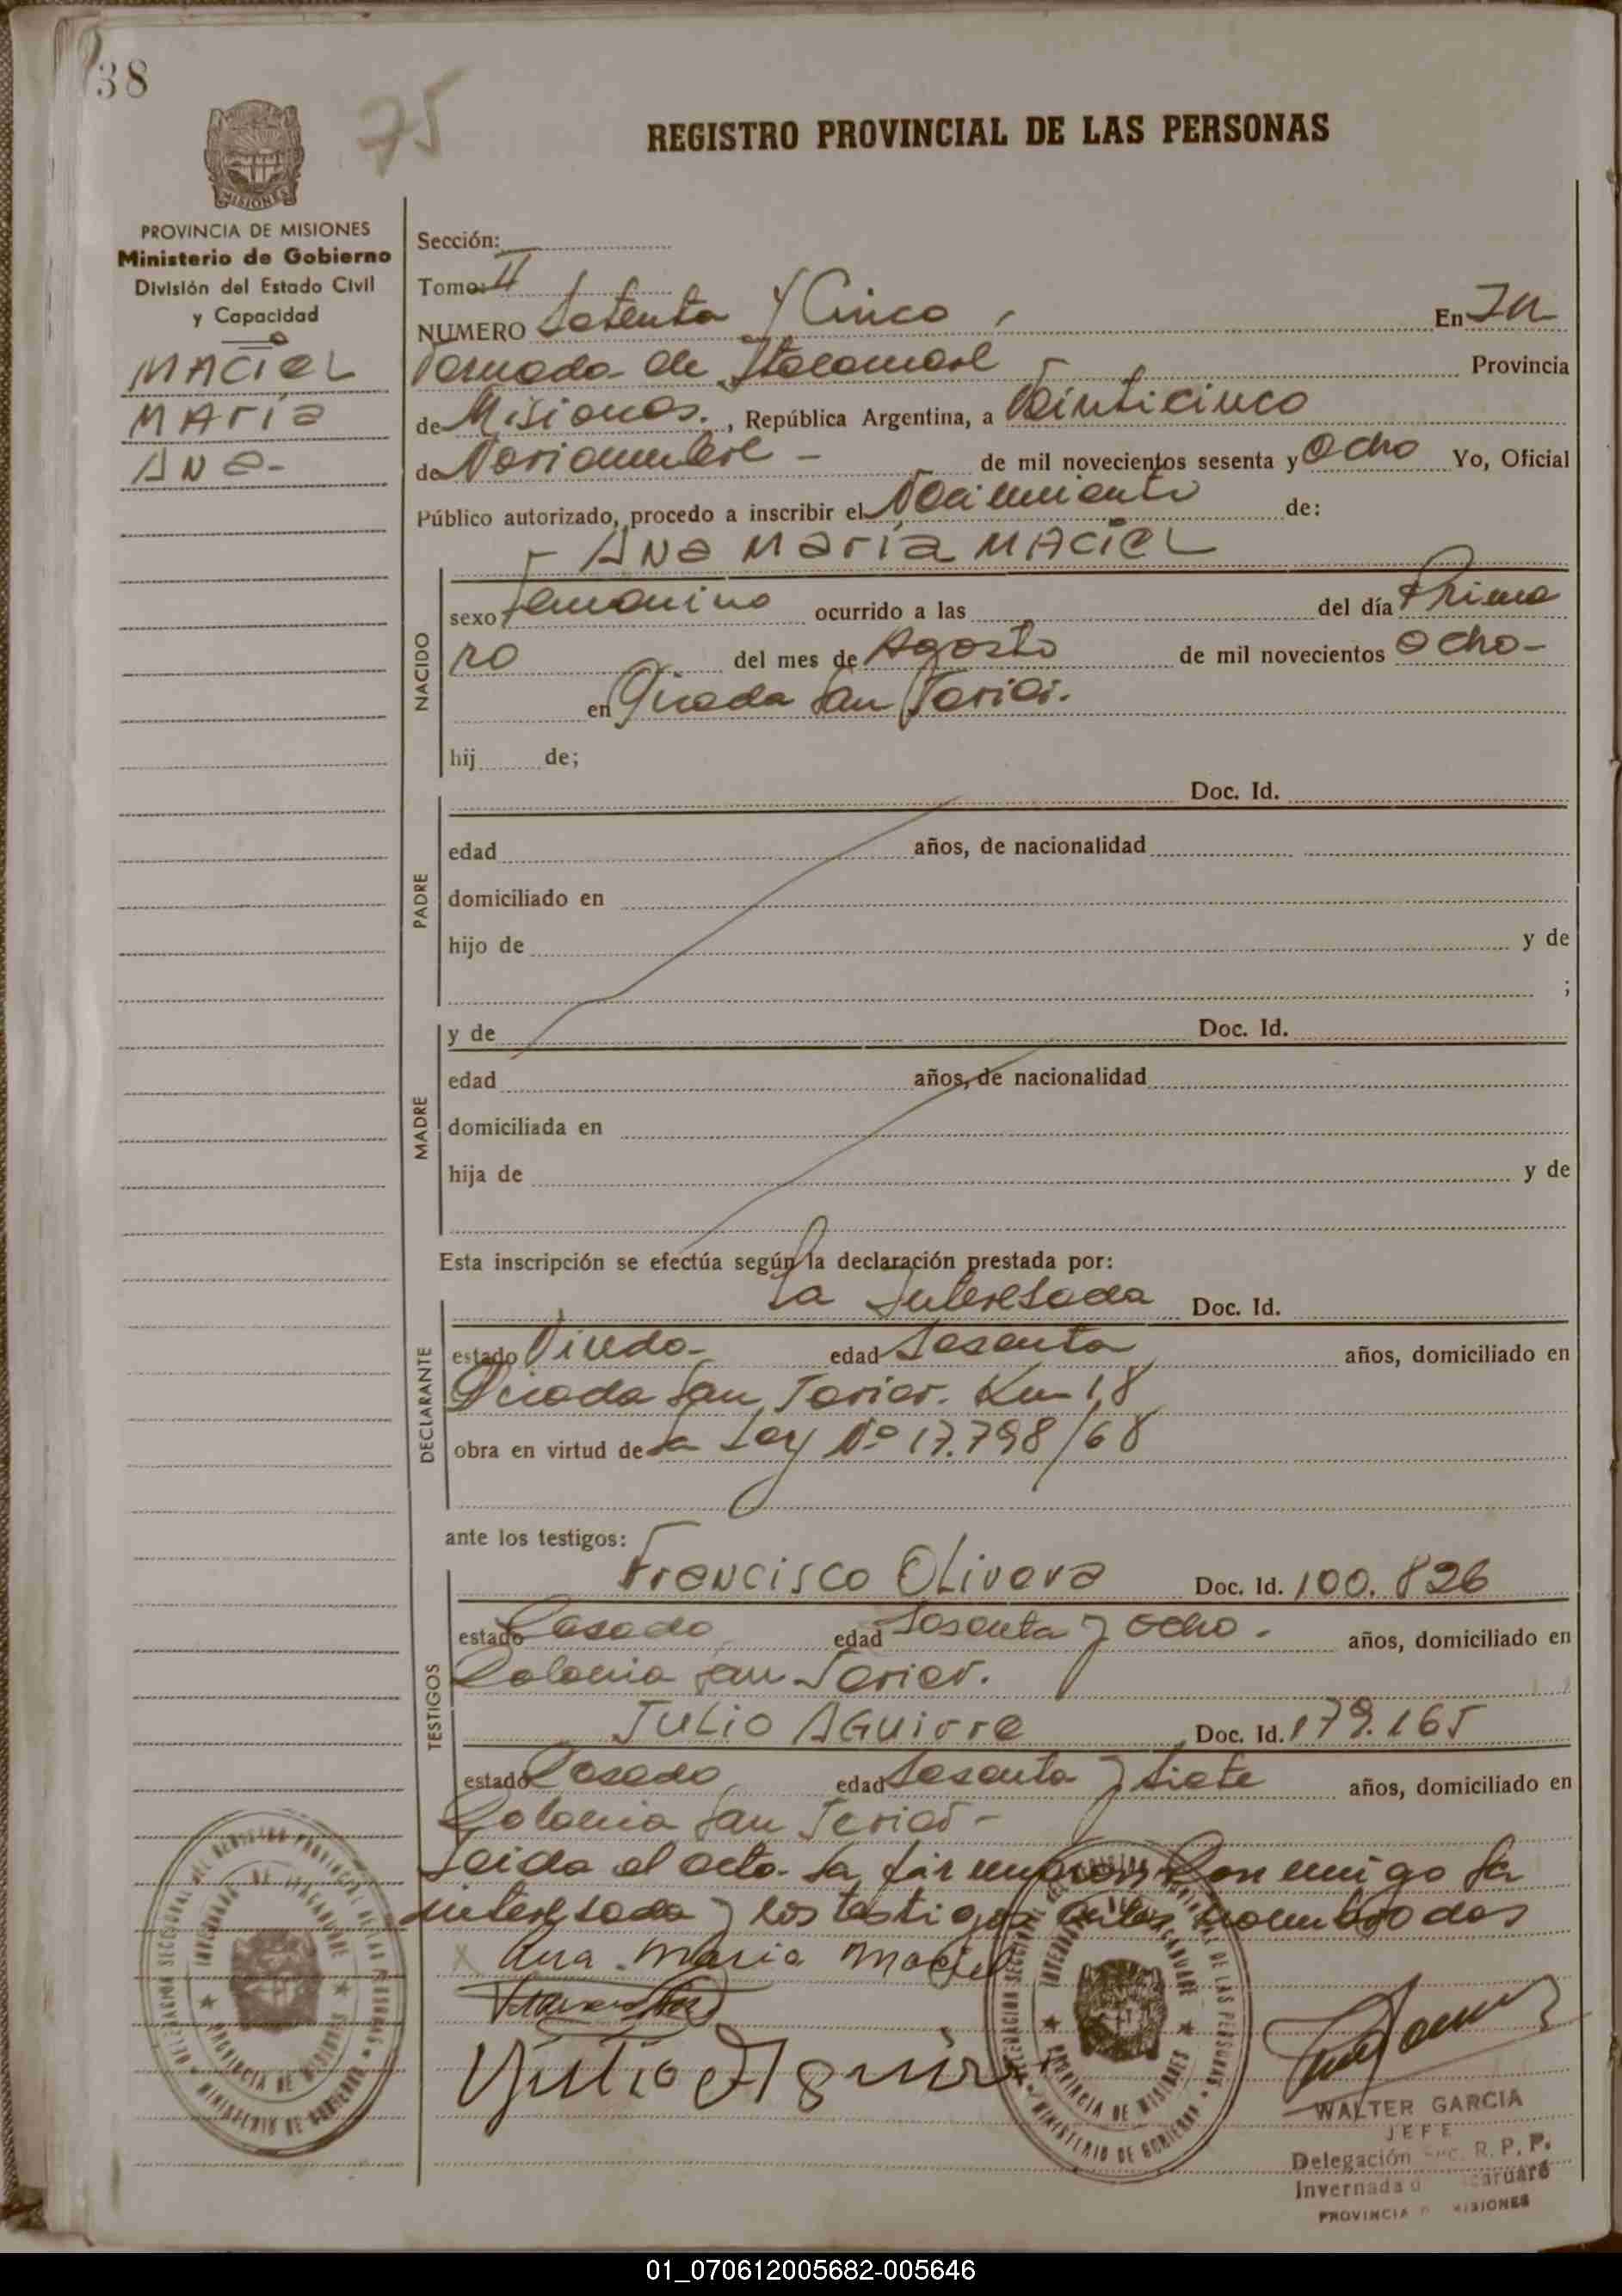 38
75
REGISTRO PROVINCIAL DE LAS PERSONAS
MISIONES
PROVINCIA DE MISIONES
Ministerio de Gobierno
División del Estado Civil
y Capacidad
MACIEL
MARIA
ANA-
Sección:
Tomo: II
NUMERO Setenta y Cinco, En In
vernada de Itacaruaré Provincia
de Misiones., República Argentina, a Veinticinco
de Noviembre - de mil novecientos sesenta y Ocho Yo, Oficial
Público autorizado, procedo a inscribir el Nacimiento de:
- ANA MARÍA MACIEL
NACIDO
sexo Femenino ocurrido a las del día Prime
ro del mes de Agosto de mil novecientos Ocho-
en Picada San Javier.
hij de;
PADRE
Doc. Id.
edad años, de nacionalidad
domiciliado en
hijo de y de
;
MADRE
y de Doc. Id.
edad años, de nacionalidad
domiciliada en
hija de y de
Esta inscripción se efectúa según la declaración prestada por:
DECLARANTE
La Interesada Doc. Id.
estado Viuda- edad Sesenta años, domiciliado en
Picada San Javier. Km 18
obra en virtud de La Ley Nº 17.798/68
ante los testigos:
TESTIGOS
Francisco Olivera Doc. Id. 100.826
estado Casado edad Sesenta y ocho - años, domiciliado en
Colonia San Javier.
Julio Aguirre Doc. Id. 179.165
estado Casado edad Sesenta y Siete años, domiciliado en
Colonia San Javier-
Leida el acta La firmaron Conmigo La
interesada y los testigos antes nombrados
Ana Maria Maciel
Julio Aguirre
DELEGACION SECCIONAL DEL REGISTRO PROVINCIAL DE LAS PERSONAS
INVERNADA DE ITACARUARE
PROVINCIA DE MISIONES
MINISTERIO DE GOBIERNO
DELEGACION SECCIONAL DEL REGISTRO PROVINCIAL DE LAS PERSONAS
INVERNADA DE ITACARUARE
PROVINCIA DE MISIONES
MINISTERIO DE GOBIERNO
WALTER GARCIA
JEFE
Delegación Sec. R. P. P.
Invernada d caruaré
PROVINCIA D MISIONES
01_070612005682-005646